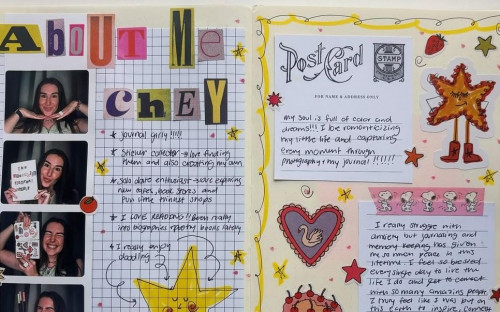 About Me
CheY
★ Journal girly!!!!!
★ Sticker collector - love finding them and also creating my own
★ Solo date enthusiast - love exploring new cafes, book stores and fun little thrift shops
★ I LOVE READING!! Been really into biographies + poetry books lately
★ I really enjoy doodling
Post Card
STAMP
FOR NAME & ADDRESS ONLY.
my soul is full of color and
dreams!!! I love romanticizing
my little life and capturing
every moment through
photography + my journal !!!!!!
I really struggle with
anxiety but journaling and
memory keeping has given
me so much peace in this
lifetime. I feel so blessed
every single day to live the
life I do and get to connect
with so many amazing people.
I truly feel like I was put on
this earth to inspire, connect